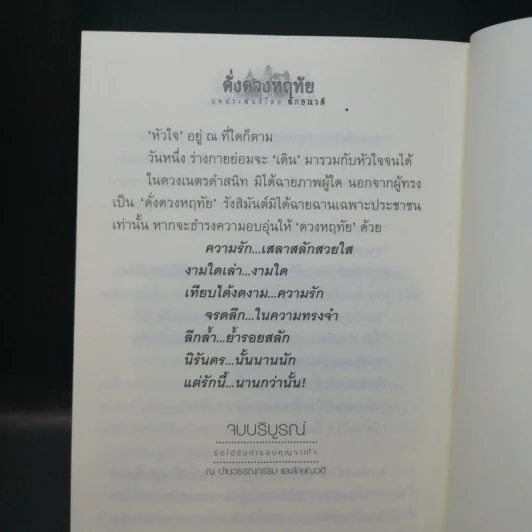 ดั่งดวงหฤทัย
บทประพันธ์โดย ลักษณวดี
‘หัวใจ’ อยู่ ณ ที่ใดก็ตาม
วันหนึ่ง ร่างกายย่อมจะ ‘เดิน’ มารวมกับหัวใจจนได้
ในดวงเนตรดำสนิท มิได้ฉายภาพผู้ใด นอกจากผู้ทรง
เป็น ‘ดั่งดวงหฤทัย’ รังสิมันต์มิได้ฉายฉานเฉพาะประชาชน
เท่านั้น หากจะธำรงความอบอุ่นให้ ‘ดวงหฤทัย’ ด้วย
ความรัก...เสลาสลักสวยใส
งามใดเล่า...งามใด
เทียบได้งดงาม...ความรัก
จรดลึก...ในความทรงจำ
ลึกล้ำ...ย้ำรอยสลัก
นิรันดร...นั้นนานนัก
แต่รักนี้...นานกว่านั้น!
จบบริบูรณ์
ขอได้รับคำขอบคุณจากใจ
ณ บ้านวรรณกรรม และลักษณวดี